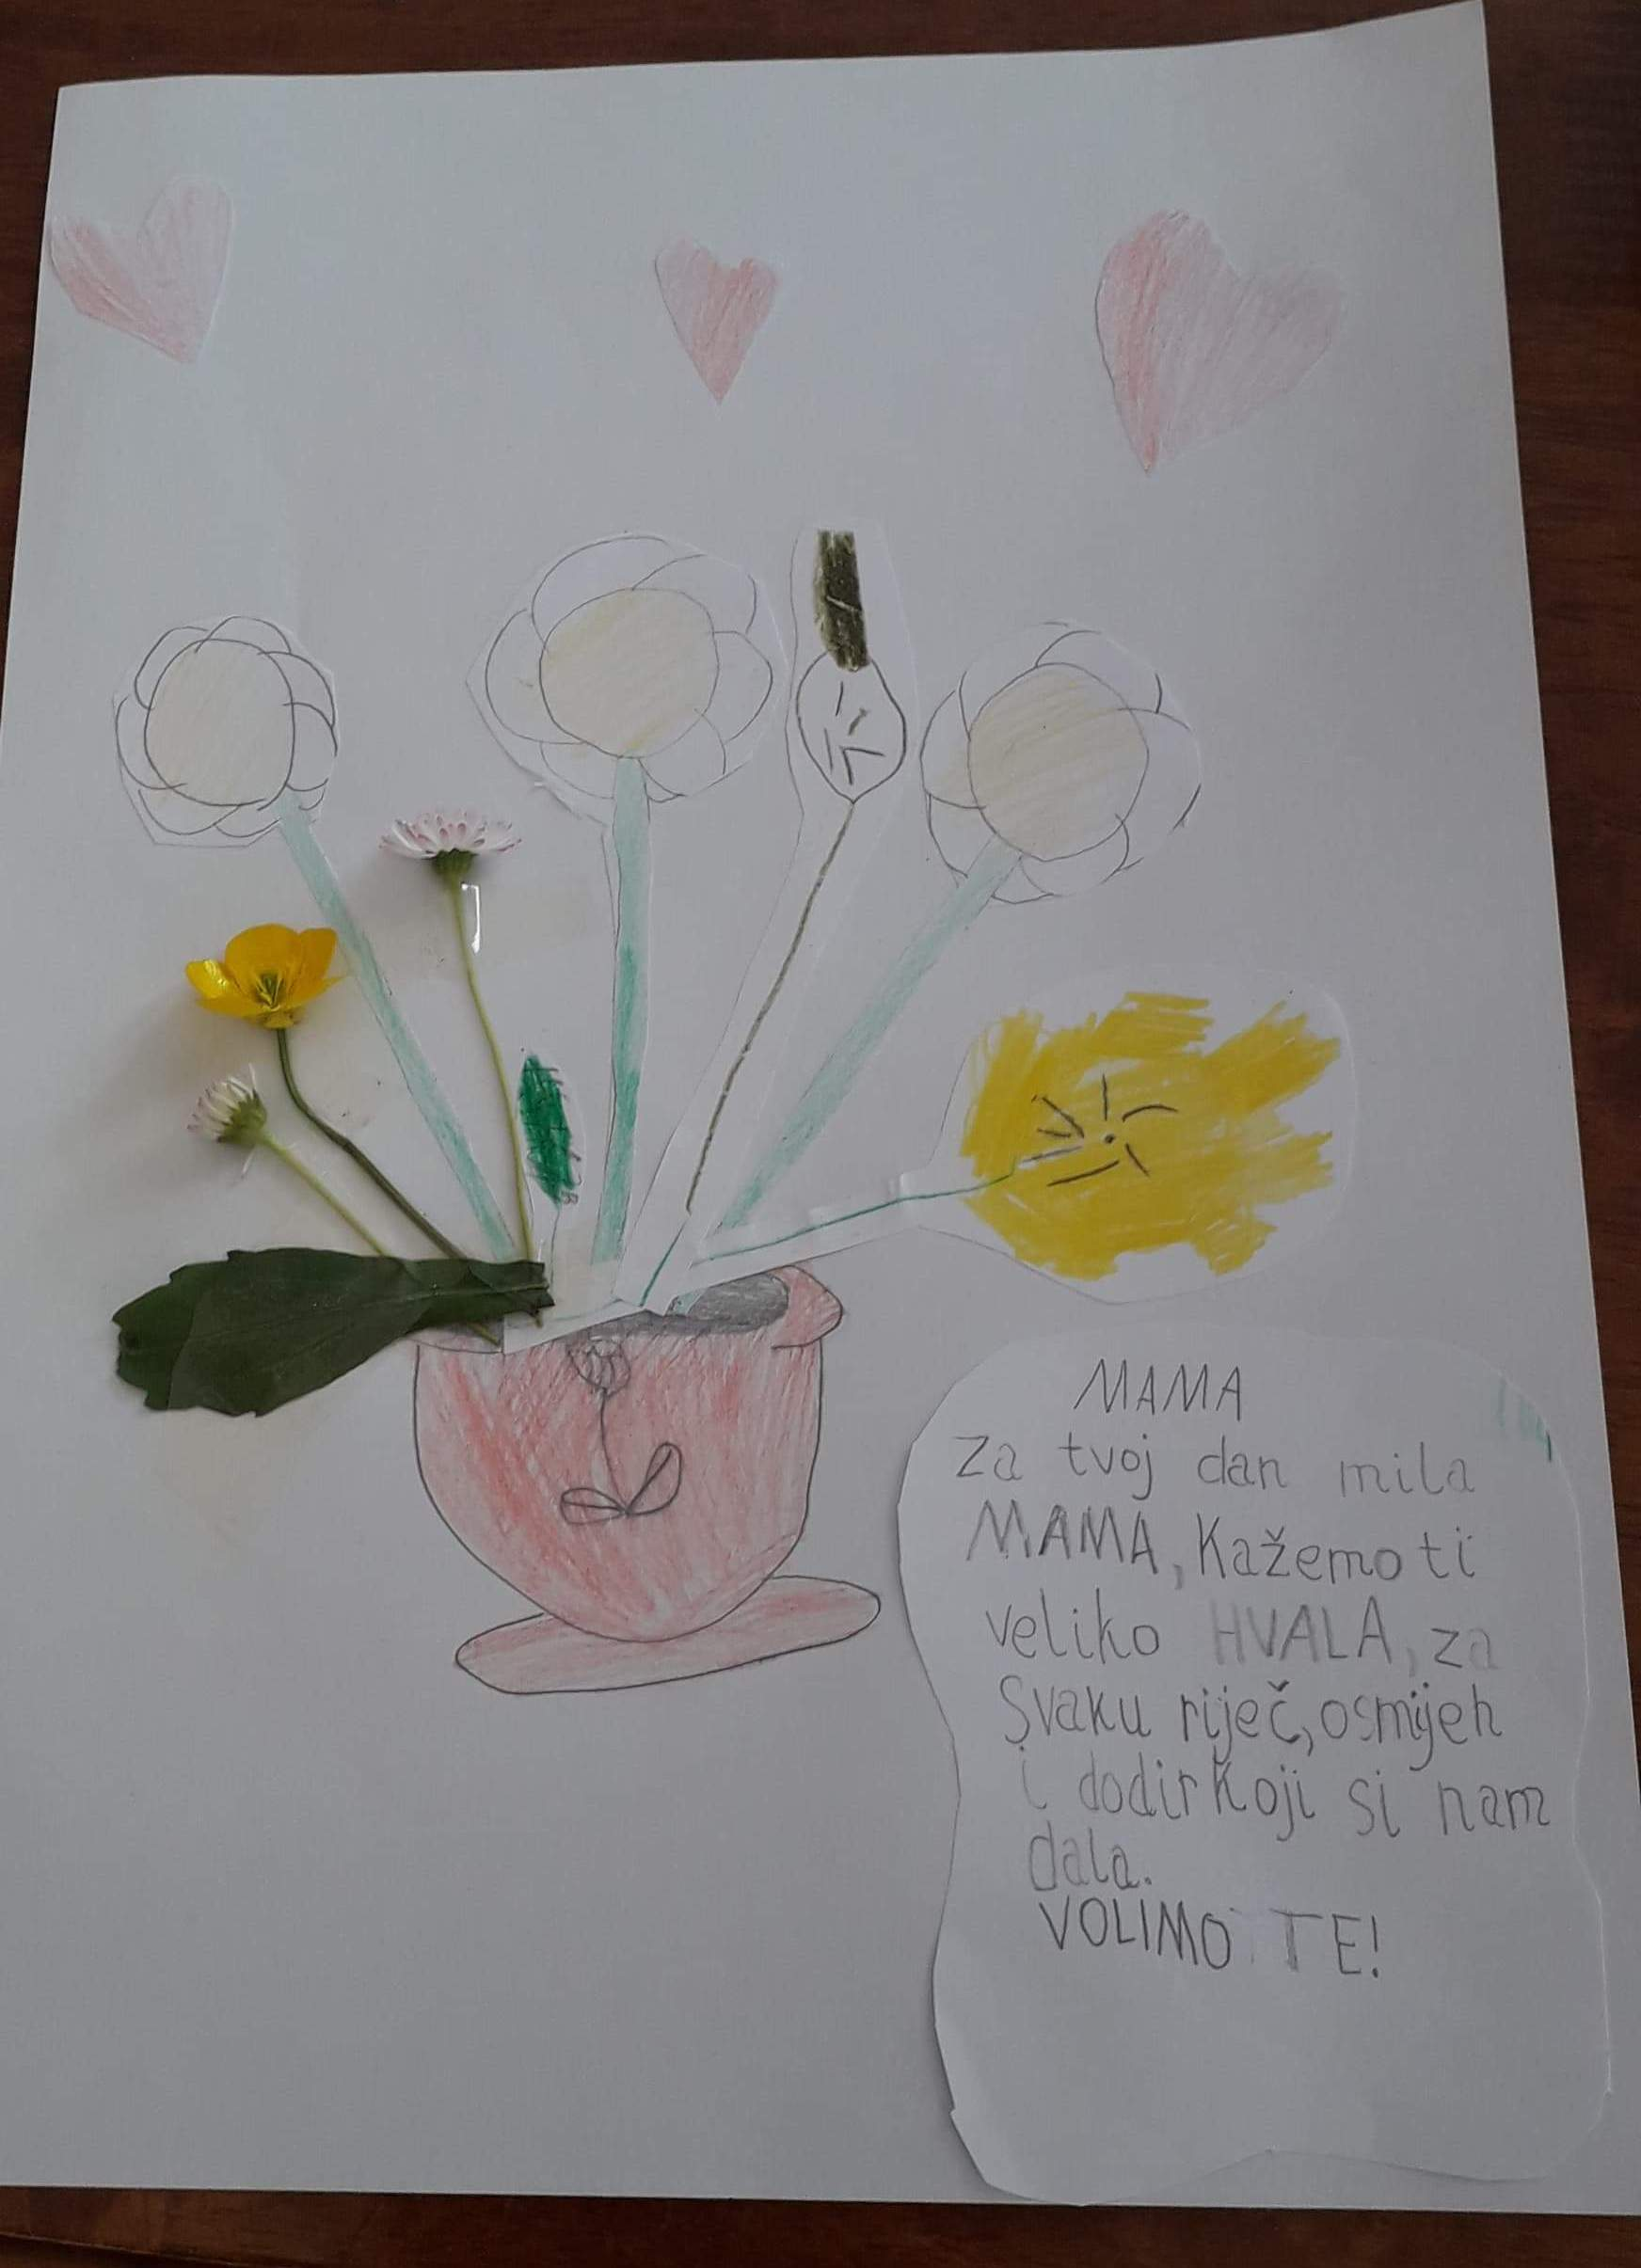 MAMA
Za tvoj dan mila
MAMA, Kažemo ti
veliko HVALA, za
Svaku riječ, osmijeh
i dodir Koji si nam
dala.
VOLIMO TE!